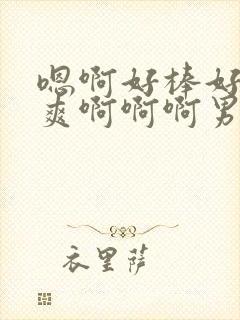 嗯啊好棒好
爽啊啊啊男
衣里萨